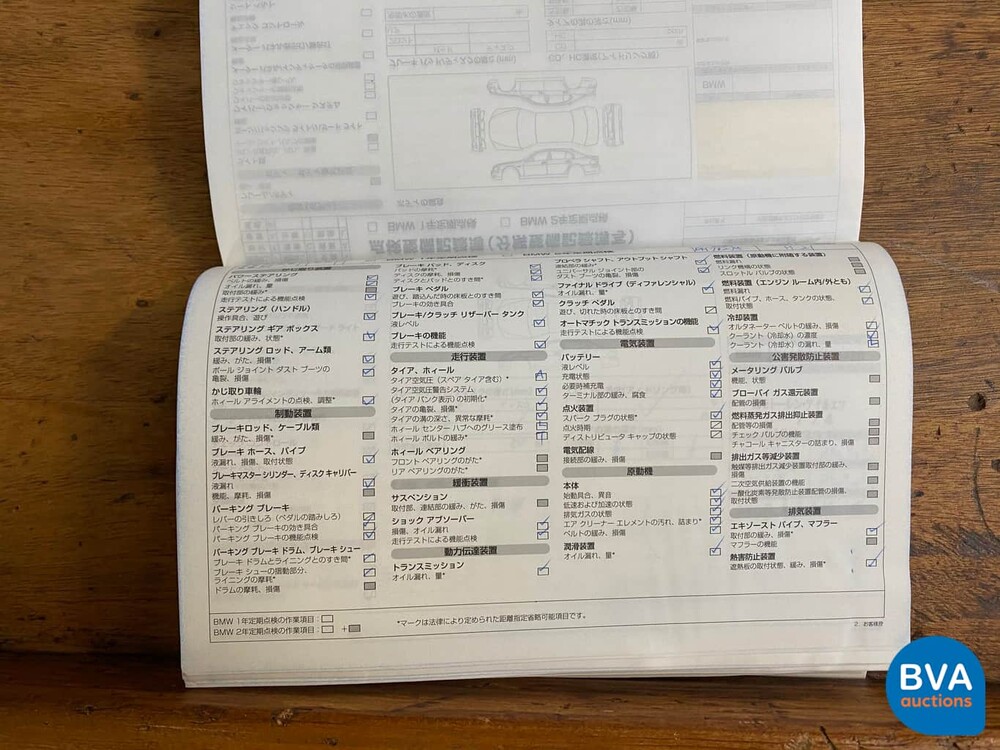 BMW 1年定期点検
BMW 2年定期点検
パワーステアリング
ベルトの緩み、損傷
オイル漏れ、量
取付部の緩み*
走行テストによる機能点検
ステアリング (ハンドル)
操作具合、遊び
ステアリング ギア ボックス
取付部の緩み*、状態*
ステアリング ロッド、アーム類
緩み、がた、損傷*
ボール ジョイント ダスト ブーツの
亀裂、損傷
かじ取り車輪
ホィール アライメントの点検、調整*
制動装置
ブレーキロッド、ケーブル類
緩み、がた、損傷*
ブレーキ ホース、パイプ
液漏れ、損傷、取付状態
ブレーキマスター シリンダー、ディスク キャリパー
液漏れ
機能、摩耗、損傷
パーキング ブレーキ
レバーの引きしろ (ペダルの踏みしろ)
パーキング ブレーキの効き具合
パーキング ブレーキの機能点検
パーキング ブレーキ ドラム、ブレーキ シュー
ブレーキ ドラムとライニングとのすき間*
ブレーキ シューの摺動部分、
ライニングの摩耗*
ドラムの摩耗、損傷
ブレーキ パッド、ディスク
パッドの摩耗*
ディスクの摩耗、損傷
ディスクとパッドとのすき間*
ブレーキ ペダル
遊び、踏込んだ時の床板とのすき間
ブレーキの効き具合
ブレーキ/クラッチ リザーバー タンク
液レベル
ブレーキの機能
走行テストによる機能点検
走行装置
タイア、ホィール
タイア空気圧 (スペア タイア含む) *
タイア空気圧警告システム
(タイア パンク表示) の初期化*
タイアの亀裂、損傷*
タイアの溝の深さ、異常な摩耗*
ホィール センター ハブへのグリース塗布
ホィール ボルトの緩み*
ホィール ベアリング
フロント ベアリングのがた*
リア ベアリングのがた*
緩衝装置
サスペンション
取付部、連結部の緩み、がた、損傷
ショック アブソーバー
損傷、オイル漏れ
走行テストによる機能点検
動力伝達装置
トランスミッション
オイル漏れ、量*
プロペラ シャフト、アウトプット シャフト
連結部の緩み*
ユニバーサル ジョイント部の
ダスト ブーツの亀裂、損傷
ファイナル ドライブ (ディファレンシャル)
オイル漏れ、量*
クラッチ ペダル
遊び、切れた時の床板とのすき間
オートマチック トランスミッションの機能
走行テストによる機能点検
電気装置
バッテリー
液レベル
充電状態
必要時補充電
ターミナル部の緩み、腐食
点火装置
スパーク プラグの状態*
点火時期
ディストリビュータ キャップの状態
電気配線
接続部の緩み、損傷
原動機
本体
始動具合、異音
低速および加速の状態
排気ガスの状態
エア クリーナー エレメントの汚れ、詰まり*
ベルトの緩み、損傷
潤滑装置
オイル漏れ、量*
燃料装置 (原動機に附随する装置)
燃料漏れ
リンク機構の状態
スロットル バルブの状態
燃料装置 (エンジン ルーム内/外とも)
燃料漏れ
燃料パイプ、ホース、タンクの状態、
取付状態
冷却装置
オルタネーター ベルトの緩み、損傷
クーラント (冷却水) の濃度
クーラント (冷却水) の漏れ、量
公害発散防止装置
メータリング バルブ
機能、状態
ブローバイ ガス還元装置
配管の損傷
燃料蒸発ガス排出抑止装置
配管等の損傷
チェック バルブの機能
チャコール キャニスターの詰まり、損傷
排出ガス等減少装置
触媒等排出ガス減少装置取付部の緩み、
損傷
二次空気供給装置の機能
一酸化炭素等発散防止装置配管の損傷、
取付状態
排気装置
エキゾースト パイプ、マフラー
取付部の緩み、損傷*
マフラーの機能
熱害防止装置
遮熱板の取付状態、緩み、損傷*
BMW 1年定期点検の作業項目：
BMW 2年定期点検の作業項目： +
*マークは法律により定められた距離指定省略可能項目です。
2．お客様控
BVA
auctions